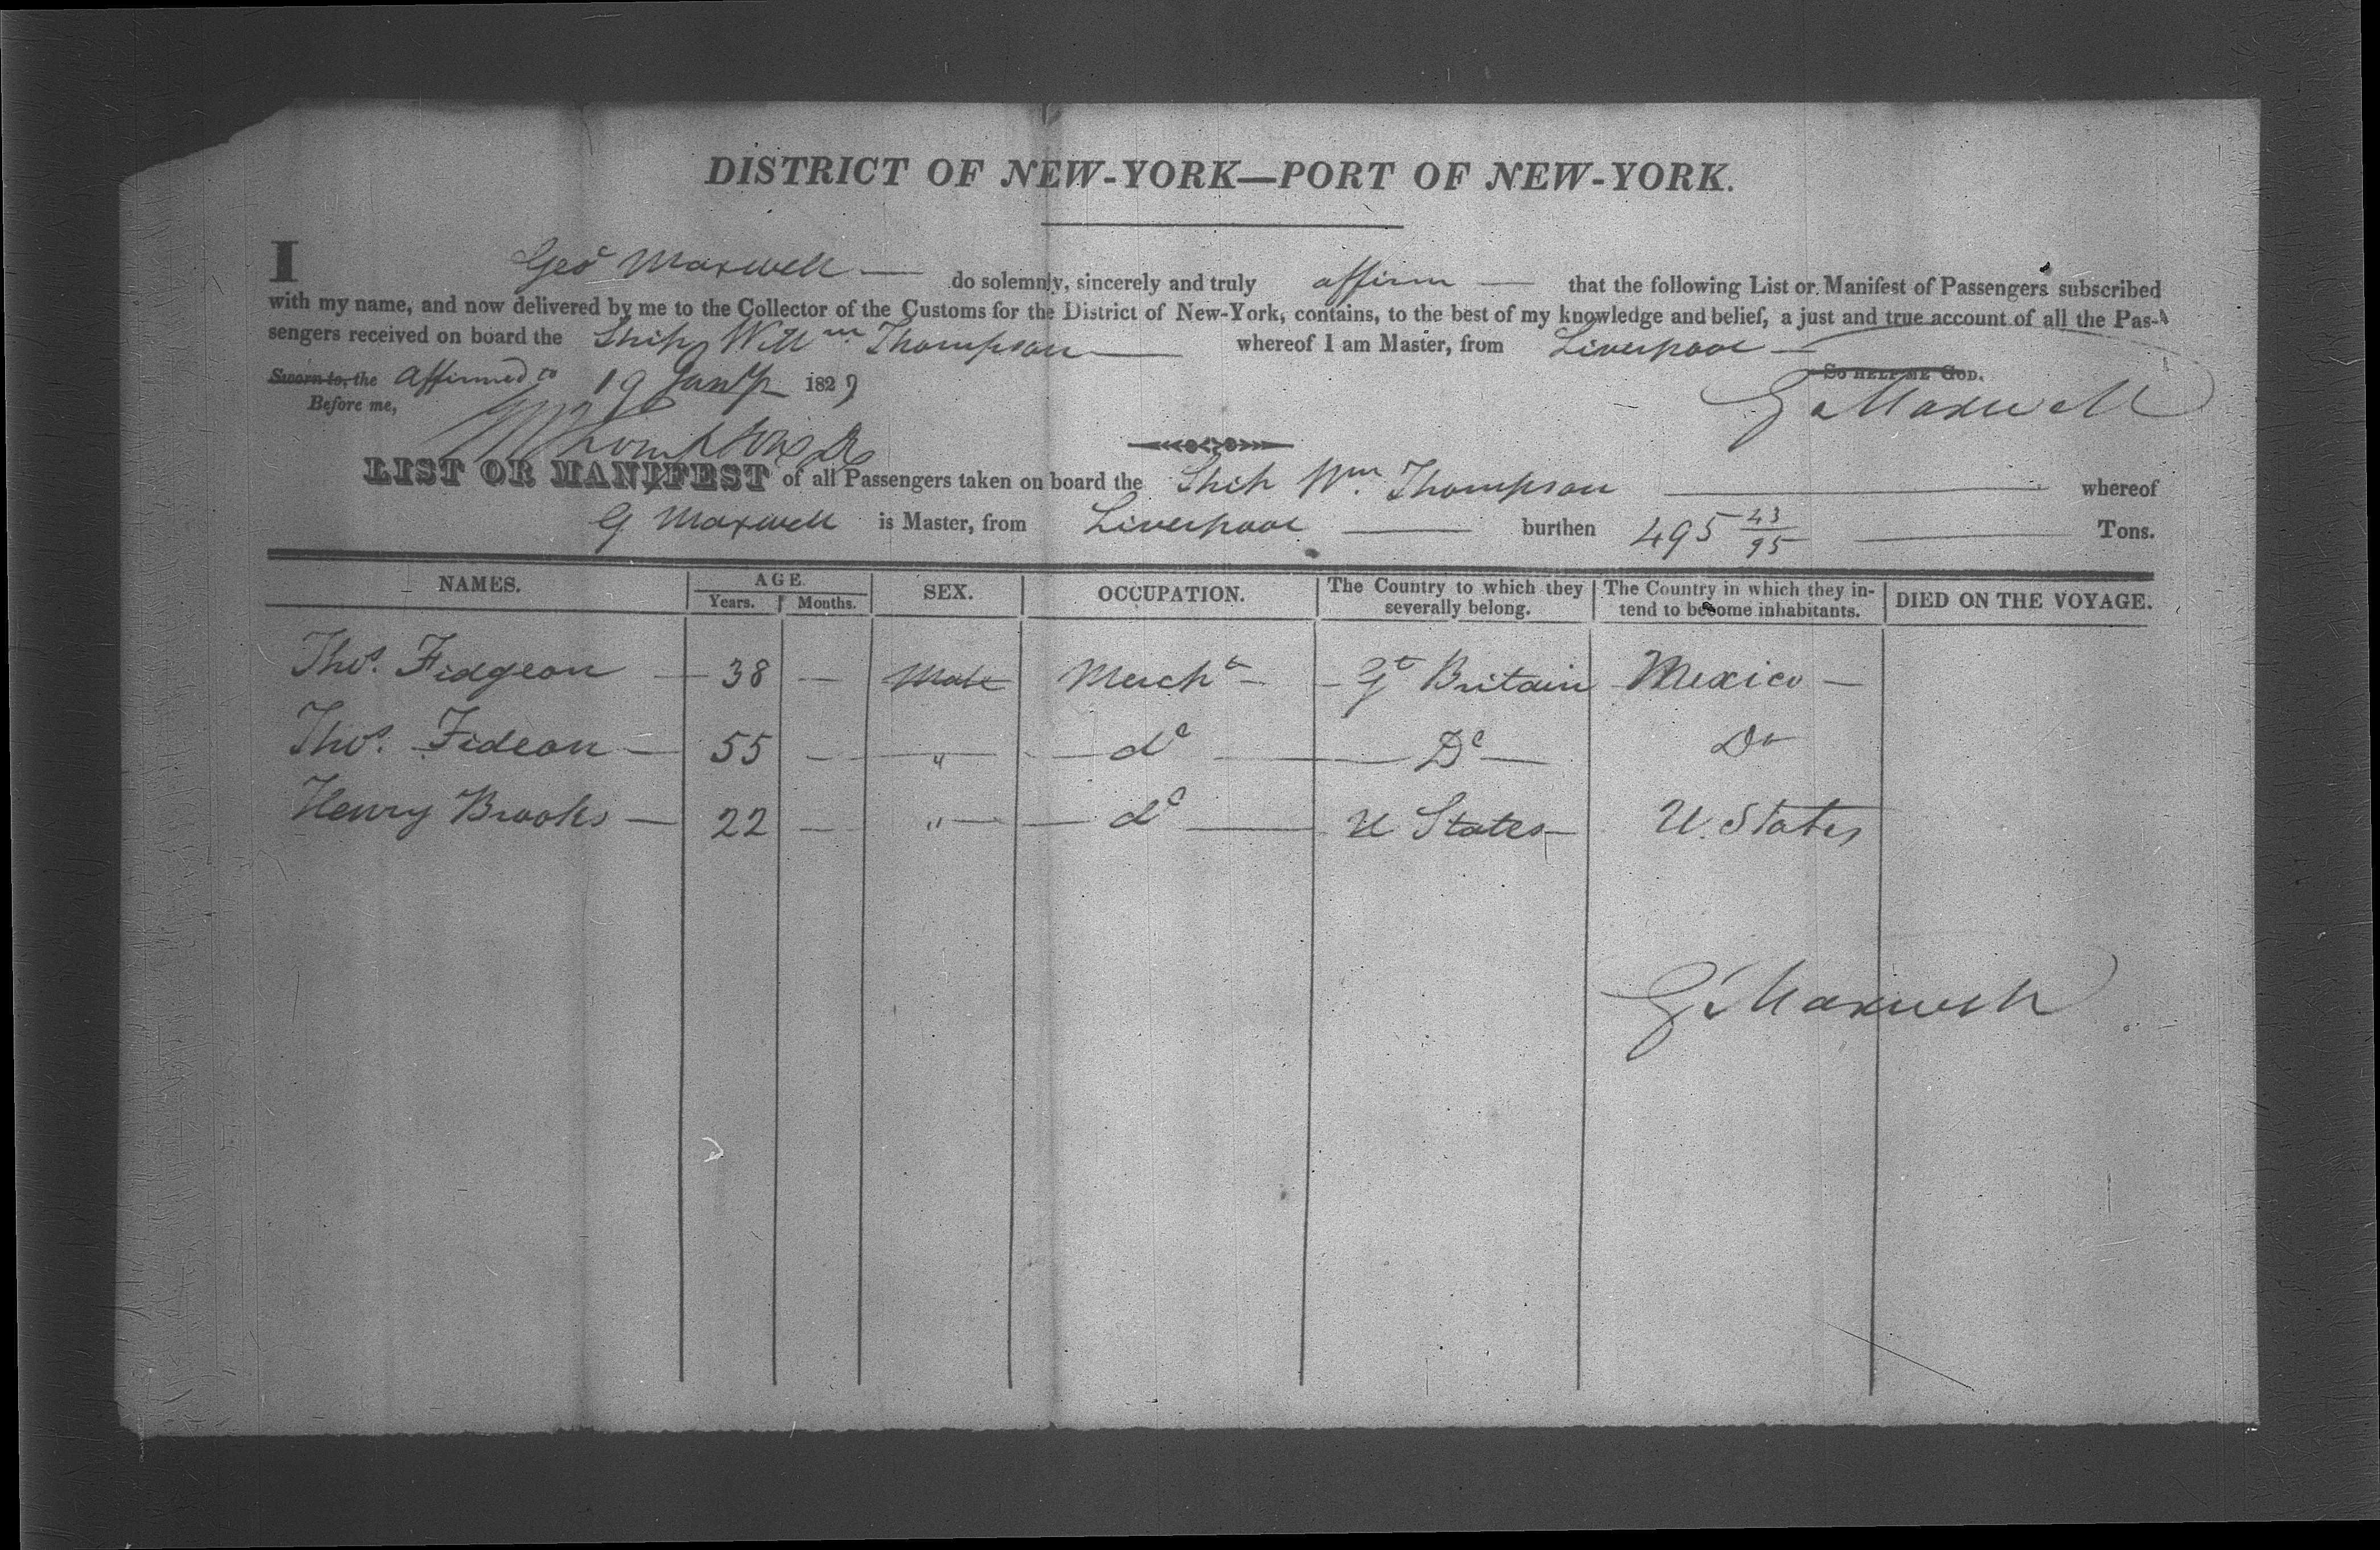 DISTRICT OF NEW-YORK—PORT OF NEW-YORK.
I Geo Maxwell — do solemnly, sincerely and truly affirm — that the following List or Manifest of Passengers subscribed
with my name, and now delivered by me to the Collector of the Customs for the District of New-York, contains, to the best of my knowledge and belief, a just and true account of all the Pas-
sengers received on board the Ship Willm Thompson — whereof I am Master, from Liverpool —
So help me God.
Sworn to, the Affirmed to 19 Jany 1829
G Maxwell
Before me,
LIST OR MANIFEST of all Passengers taken on board the Ship Wm. Thompson — whereof
G Maxwell is Master, from Liverpool — burthen 495 43/95 — Tons.
NAMES. AGE. Years. Months. SEX. OCCUPATION. The Country to which they severally belong. The Country in which they intend to become inhabitants. DIED ON THE VOYAGE.
Thos. Fidgeon — 38 — Male Mercht — Gt Britain Mexico —
Thos. Fideon — 55 — " — do — Do — Do
Henry Brooks — 22 — " — do — U States — U. States
G Maxwell